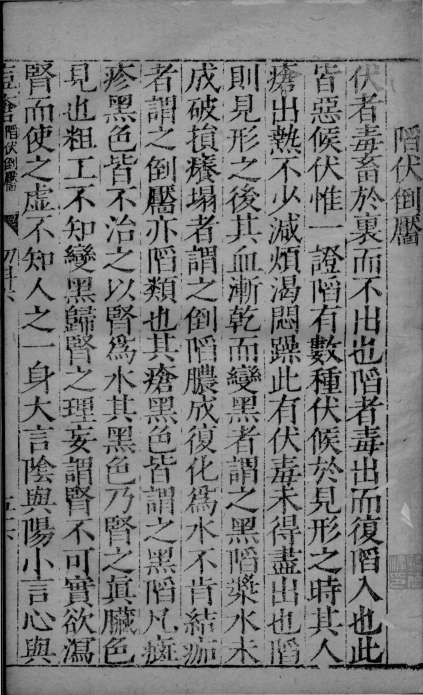 陷伏倒靨
伏者毒畜於裏而不出也陷者毒出而復陷入也此
皆惡候伏惟一證陷有數種伏候於見形之時其人
瘡出熱不少減煩渴悶躁此有伏毒未得盡出也陷
則見形之後其血漸乾而變黑者謂之黑陷漿水未
成破損癢塌者謂之倒陷膿成復化為水不肯結痂
者謂之倒靨亦陷類也其瘡黑色皆謂之黑陷凡瘡
疹黑色皆不治之以腎為水其黑色乃腎之眞臟色
見也粗工不知變黑歸腎之理妄謂腎不可實欲瀉
腎而使之虛不知人之一身大言陰與陽小言心與
陷伏倒靨